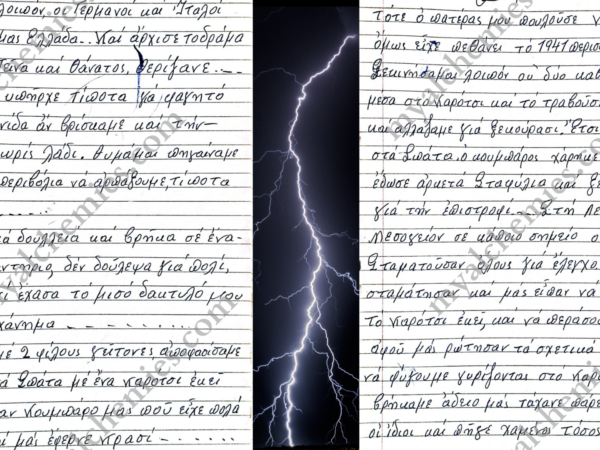 λοιπόν οι Γερμανοί και Ιταλοί
μας Ελλάδα.. Και άρχισε το δράμα
Πείνα και θάνατος, θερίζανε
υπήρχε τίποτα γιά φαγητό
αν βρίσκαμε και την
χωρίς λάδι. θυμάμαι πηγαίναμε
περιβόλια νά αρπάξουμε, τίποτα
δουλλεια και βρήκα σε ένα
δέν δούλεψα γιά πολί,
έχασα τό μισό δακτυλό μου
μέ 2 φίλους γείτονες αποφασίσαμε
Σπάτα μέ ένα καρότσι εκεί
κουμπάρο μας πού είχε πολά
μάς έφερνε κρασί
Τότε ο πατέρας μου πουλούσε
όμως είχε πεθάνει τό 1941
Ξεκινήσαμαι λοιπόν οι δύο
μεσα στό καρότσι και το τραβούσα
και αλλάζαμε γιά ξεκούραση. Έτσι
στα Σπάτα. ο κουμπάρος χάρηκε
έδωσε αρκετά Σταφύλια και
γιά τήν επιστροφή Στή
Μεσογείον σέ κάποιο σημείο
Σταματούσαν όλους γιά έλεγχο
σταμάτησαν και μάς είπαν νά
Το καρότσι εκεί, και νά περάσου
αφού μάς ρώτησαν τά σχετικά
νά φύγουμε γυρίζοντας στό
βρήκαμε άδειο μάς τάχανε πάρει
οι ίδιοι και πήγε χαμένο τόσος
myalchemies.com